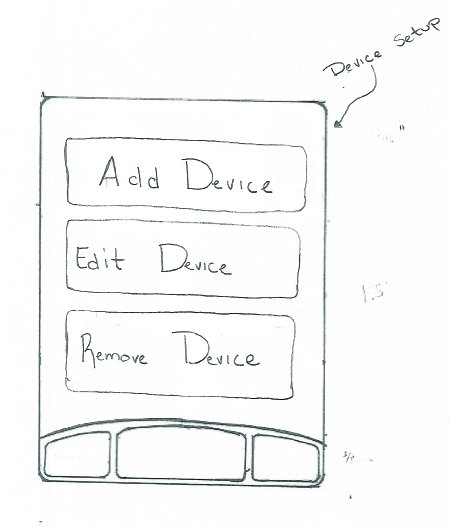 Device Setup
Add Device
Edit Device
Remove Device
1.5"